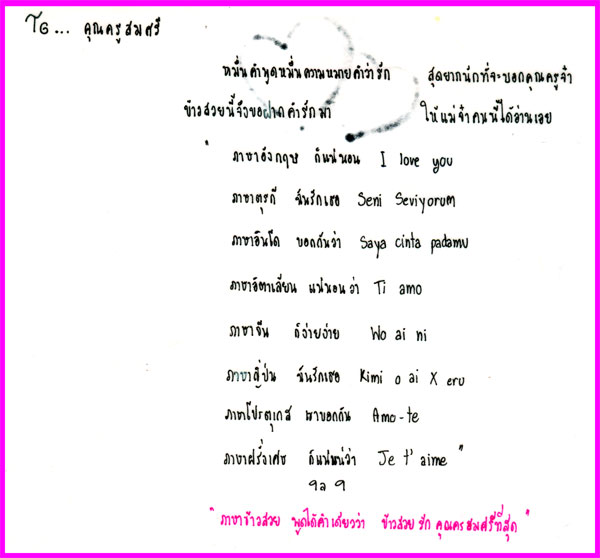 To... คุณครูสมศรี
หมื่นคำพูดหมื่นความหมายคำว่ารัก สุดยากนักที่จะบอกคุณครูจ๋า
ข้าวสวยนี้จึงขอฝากคำรักมา ให้แม่จ๋าคนนี้ได้อ่านเอย
" ภาษาอังกฤษ ก็แน่นอน I love you
ภาษาตุรกี ฉันรักเธอ Seni Seviyorum
ภาษาอินโด บอกกันว่า Saya cinta padamu
ภาษาอิตาเลียน แน่นอนว่า Ti amo
ภาษาจีน ก็ง่ายง่าย Wo ai ni
ภาษาญี่ปุ่น ฉันรักเธอ Kimi o ai X eru
ภาษาโปรตุเกส เขาบอกกัน Amo-te
ภาษาฝรั่งเศษ ก็แน่ว่า Je t' aime "
ฯลฯ
" ภาษาข้าวสวย พูดได้คำเดียวว่า ข้าวสวย รัก คุณครูสมศรีที่สุด "